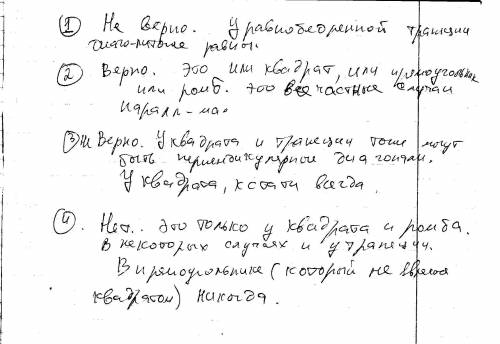 ① Не верно. У равнобедренной трапеции
равны.
② Верно. Это или квадрат, или прямоугольник
или ромб. Это все частные случаи
паралл-ма.
③ Верно. У квадрата и трапеции тоже могут
быть перпендикулярные диагонали.
У квадрата, кстати всегда.
④. Нет.. Это только у квадрата и ромба.
В некоторых случаях и у трапеции.
В прямоугольнике (который не
квадратом) никогда.